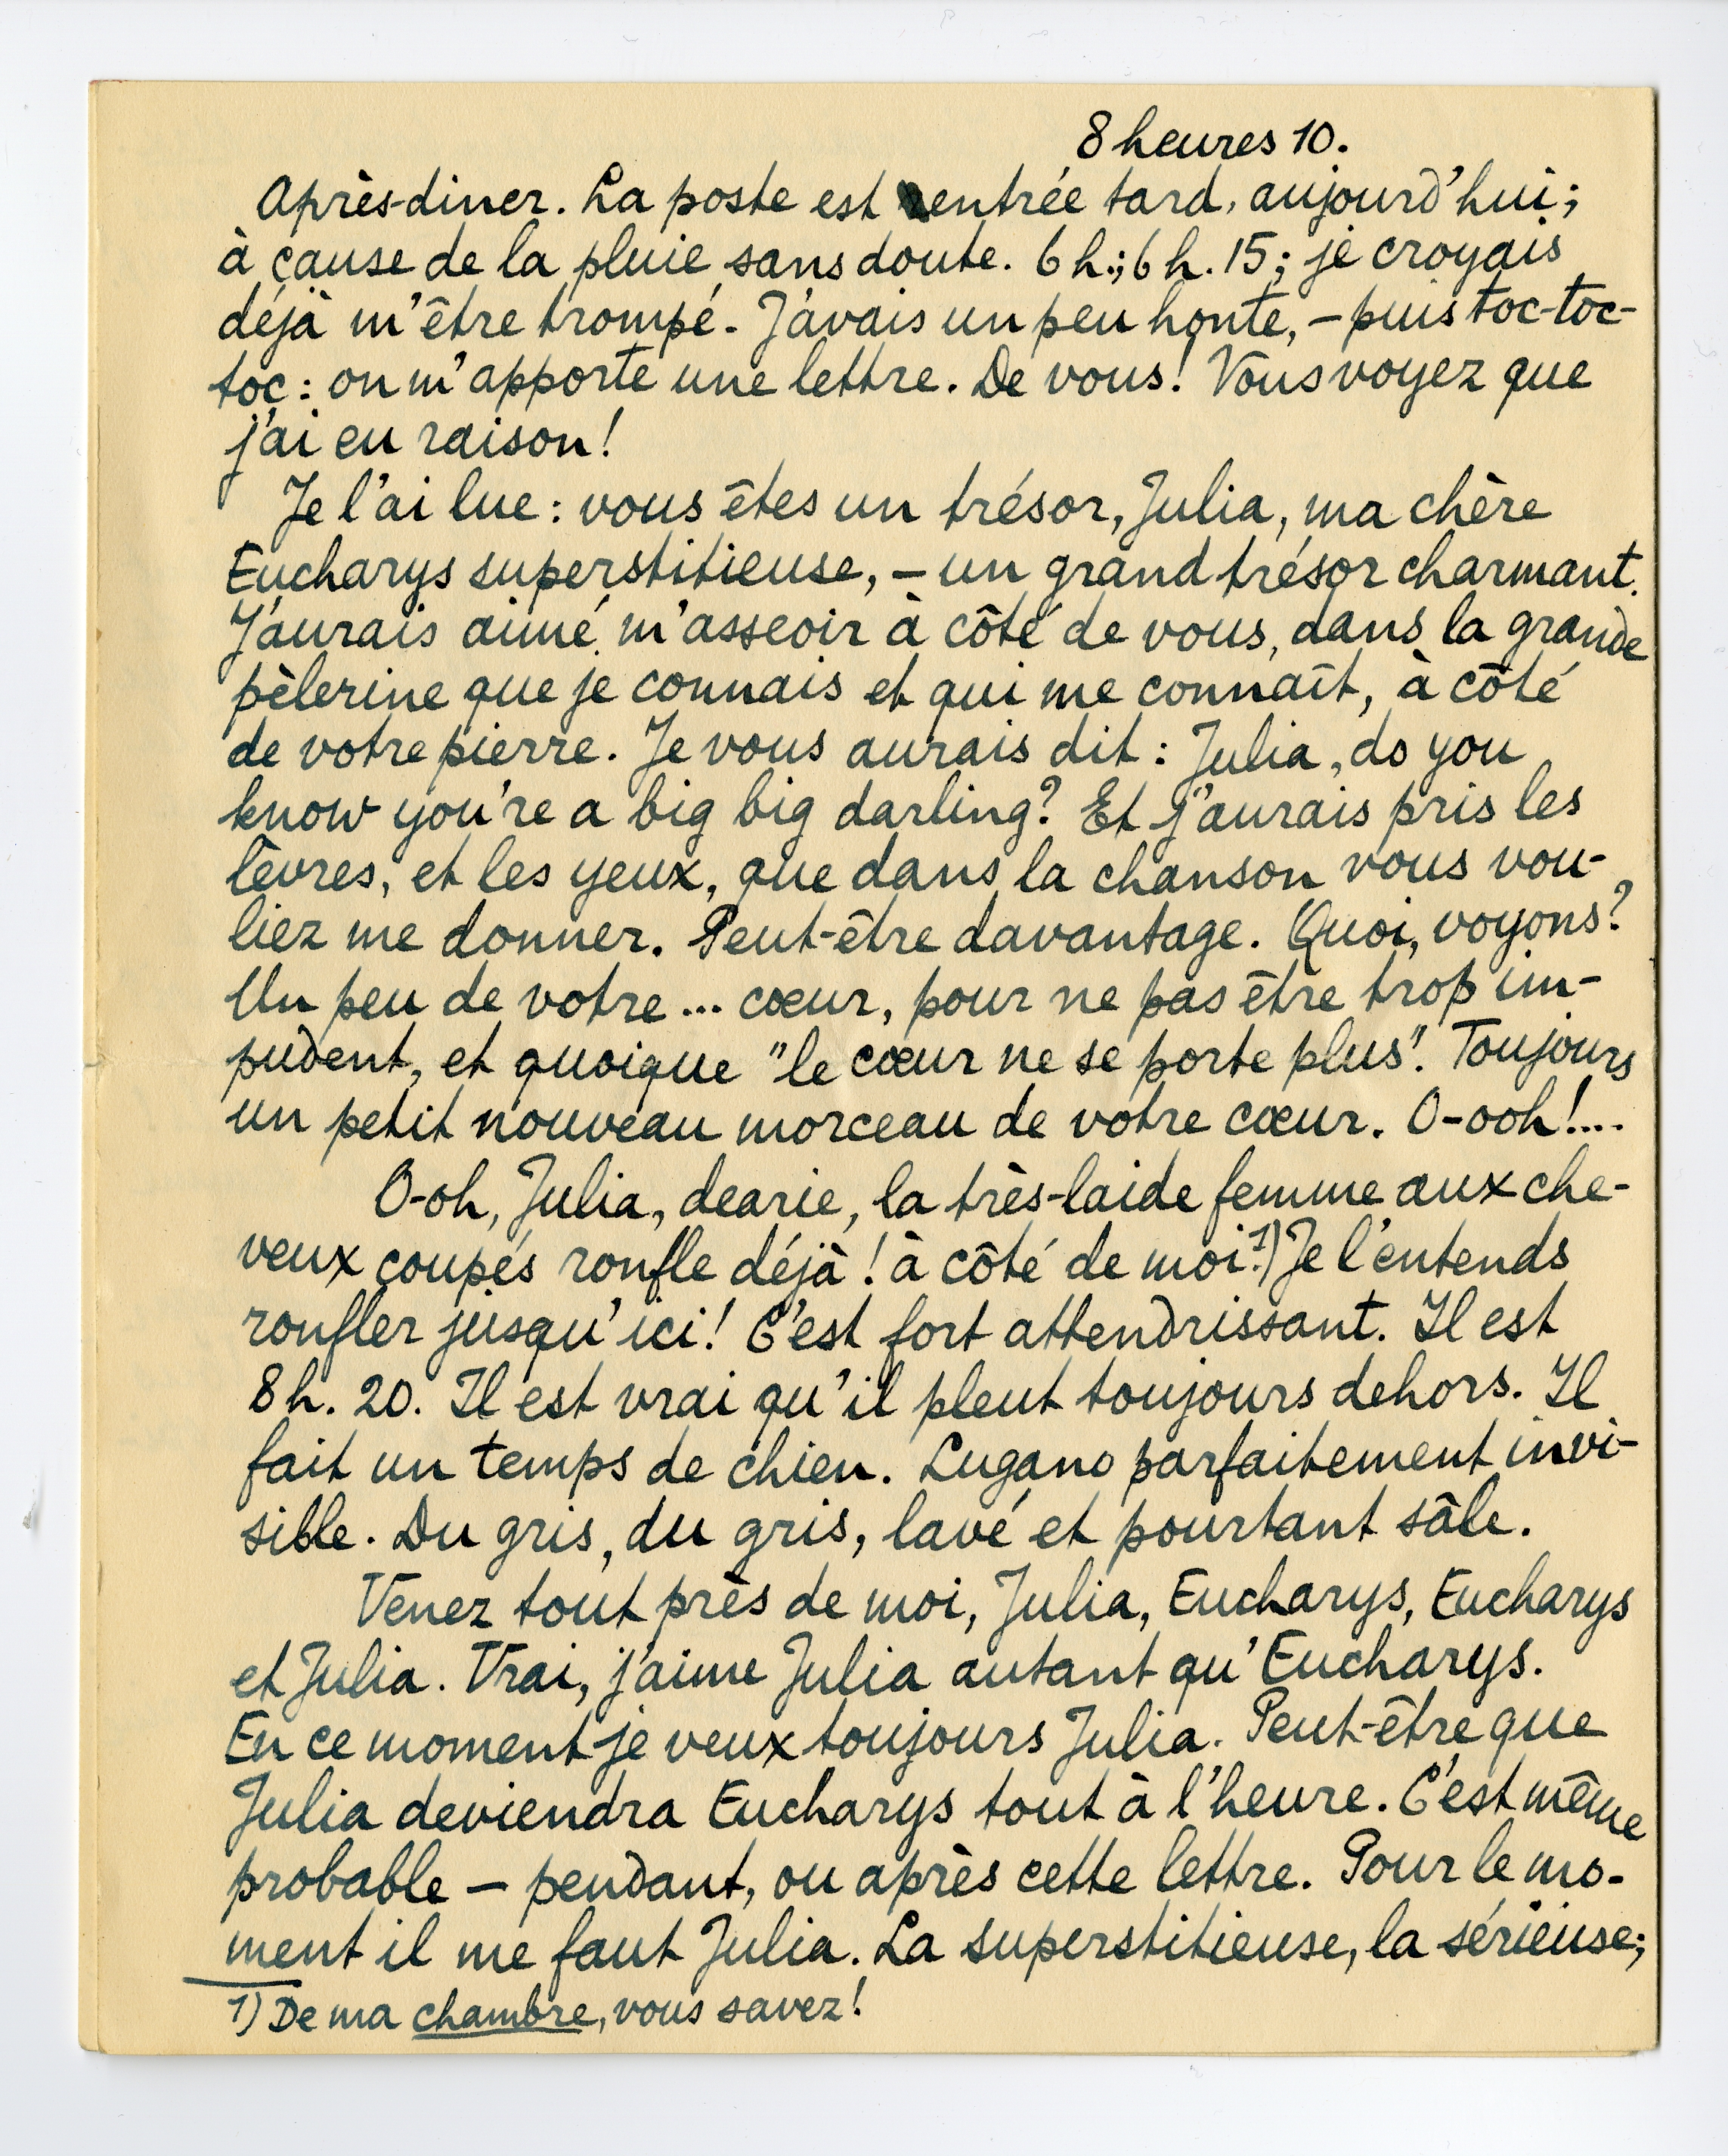 8 heures 10.
Après-diner. La poste est rentrée tard, aujourd'hui;
à cause de la pluie sans doute. 6 h.; 6 h. 15; je croyais
déjà m'être trompé. J'avais un peu honte, – puis toc-toc-
toc: on m'apporte une lettre. De vous! Vous voyez que
j'ai eu raison!
Je l'ai lue: vous êtes un trésor, Julia, ma chère
Eucharys superstitieuse, – un grand trésor charmant.
J'aurais aimé m'asseoir à côté de vous, dans la grande
pèlerine que je connais et qui me connaît, à côté
de votre pierre. Je vous aurais dit: Julia, do you
know you're a big big darling? Et j'aurais pris les
lèvres, et les yeux, que dans la chanson vous vou-
liez me donner. Peut-être davantage. Quoi, voyons?
Un peu de votre ... cœur, pour ne pas être trop im-
pudent, et quoique "le cœur ne se porte plus". Toujours
un petit nouveau morceau de votre cœur. O-ooh!....
O-oh, Julia, dearie, la très-laide femme aux che-
veux coupés ronfle déjà! à côté de moi.1) Je l'entends
ronfler jusqu'ici! C'est fort attendrissant. Il est
8 h. 20. Il est vrai qu'il pleut toujours dehors. Il
fait un temps de chien. Lugano parfaitement invi-
sible. Du gris, du gris, lavé et pourtant sâle.
Venez tout près de moi, Julia, Eucharys, Eucharys
et Julia. Vrai, j'aime Julia autant qu'Eucharys.
En ce moment je veux toujours Julia. Peut-être que
Julia deviendra Eucharys tout à l'heure. C'est même
probable – pendant, ou après cette lettre. Pour le mo-
ment il me faut Julia. La superstitieuse, la sérieuse;
1) De ma chambre, vous savez!